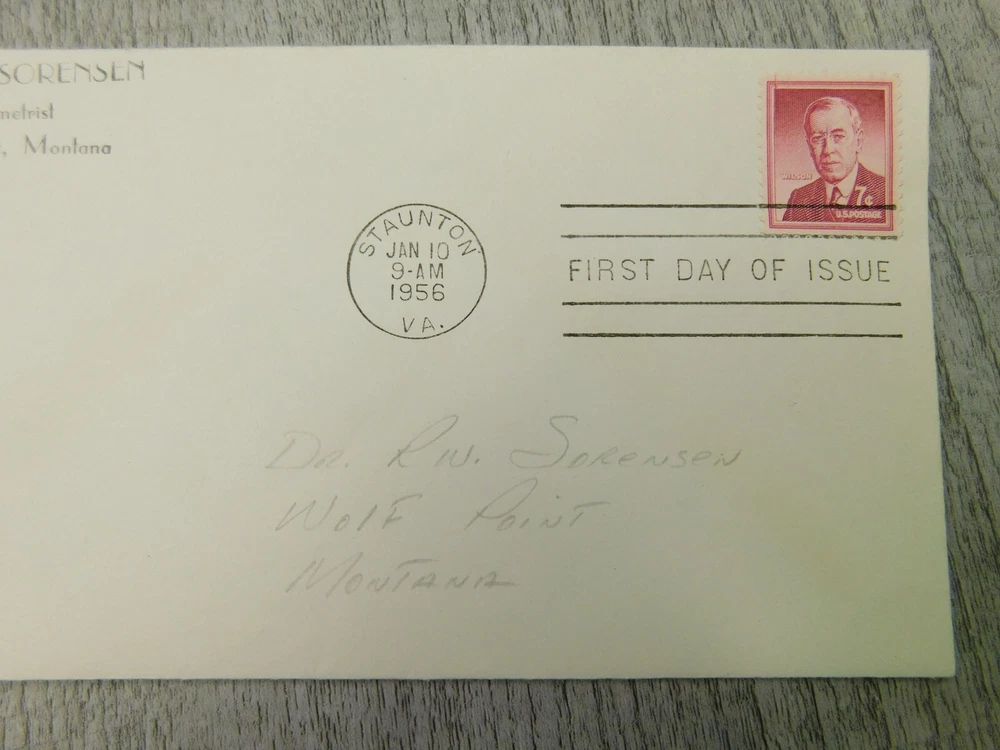 SORENSEN
metrist
, Montana
WILSON
7¢
U.S.POSTAGE
STAUNTON
JAN 10
9-AM
1956
VA.
FIRST DAY OF ISSUE
DR. R.W. SORENSEN
WOLF POINT
MONTANA